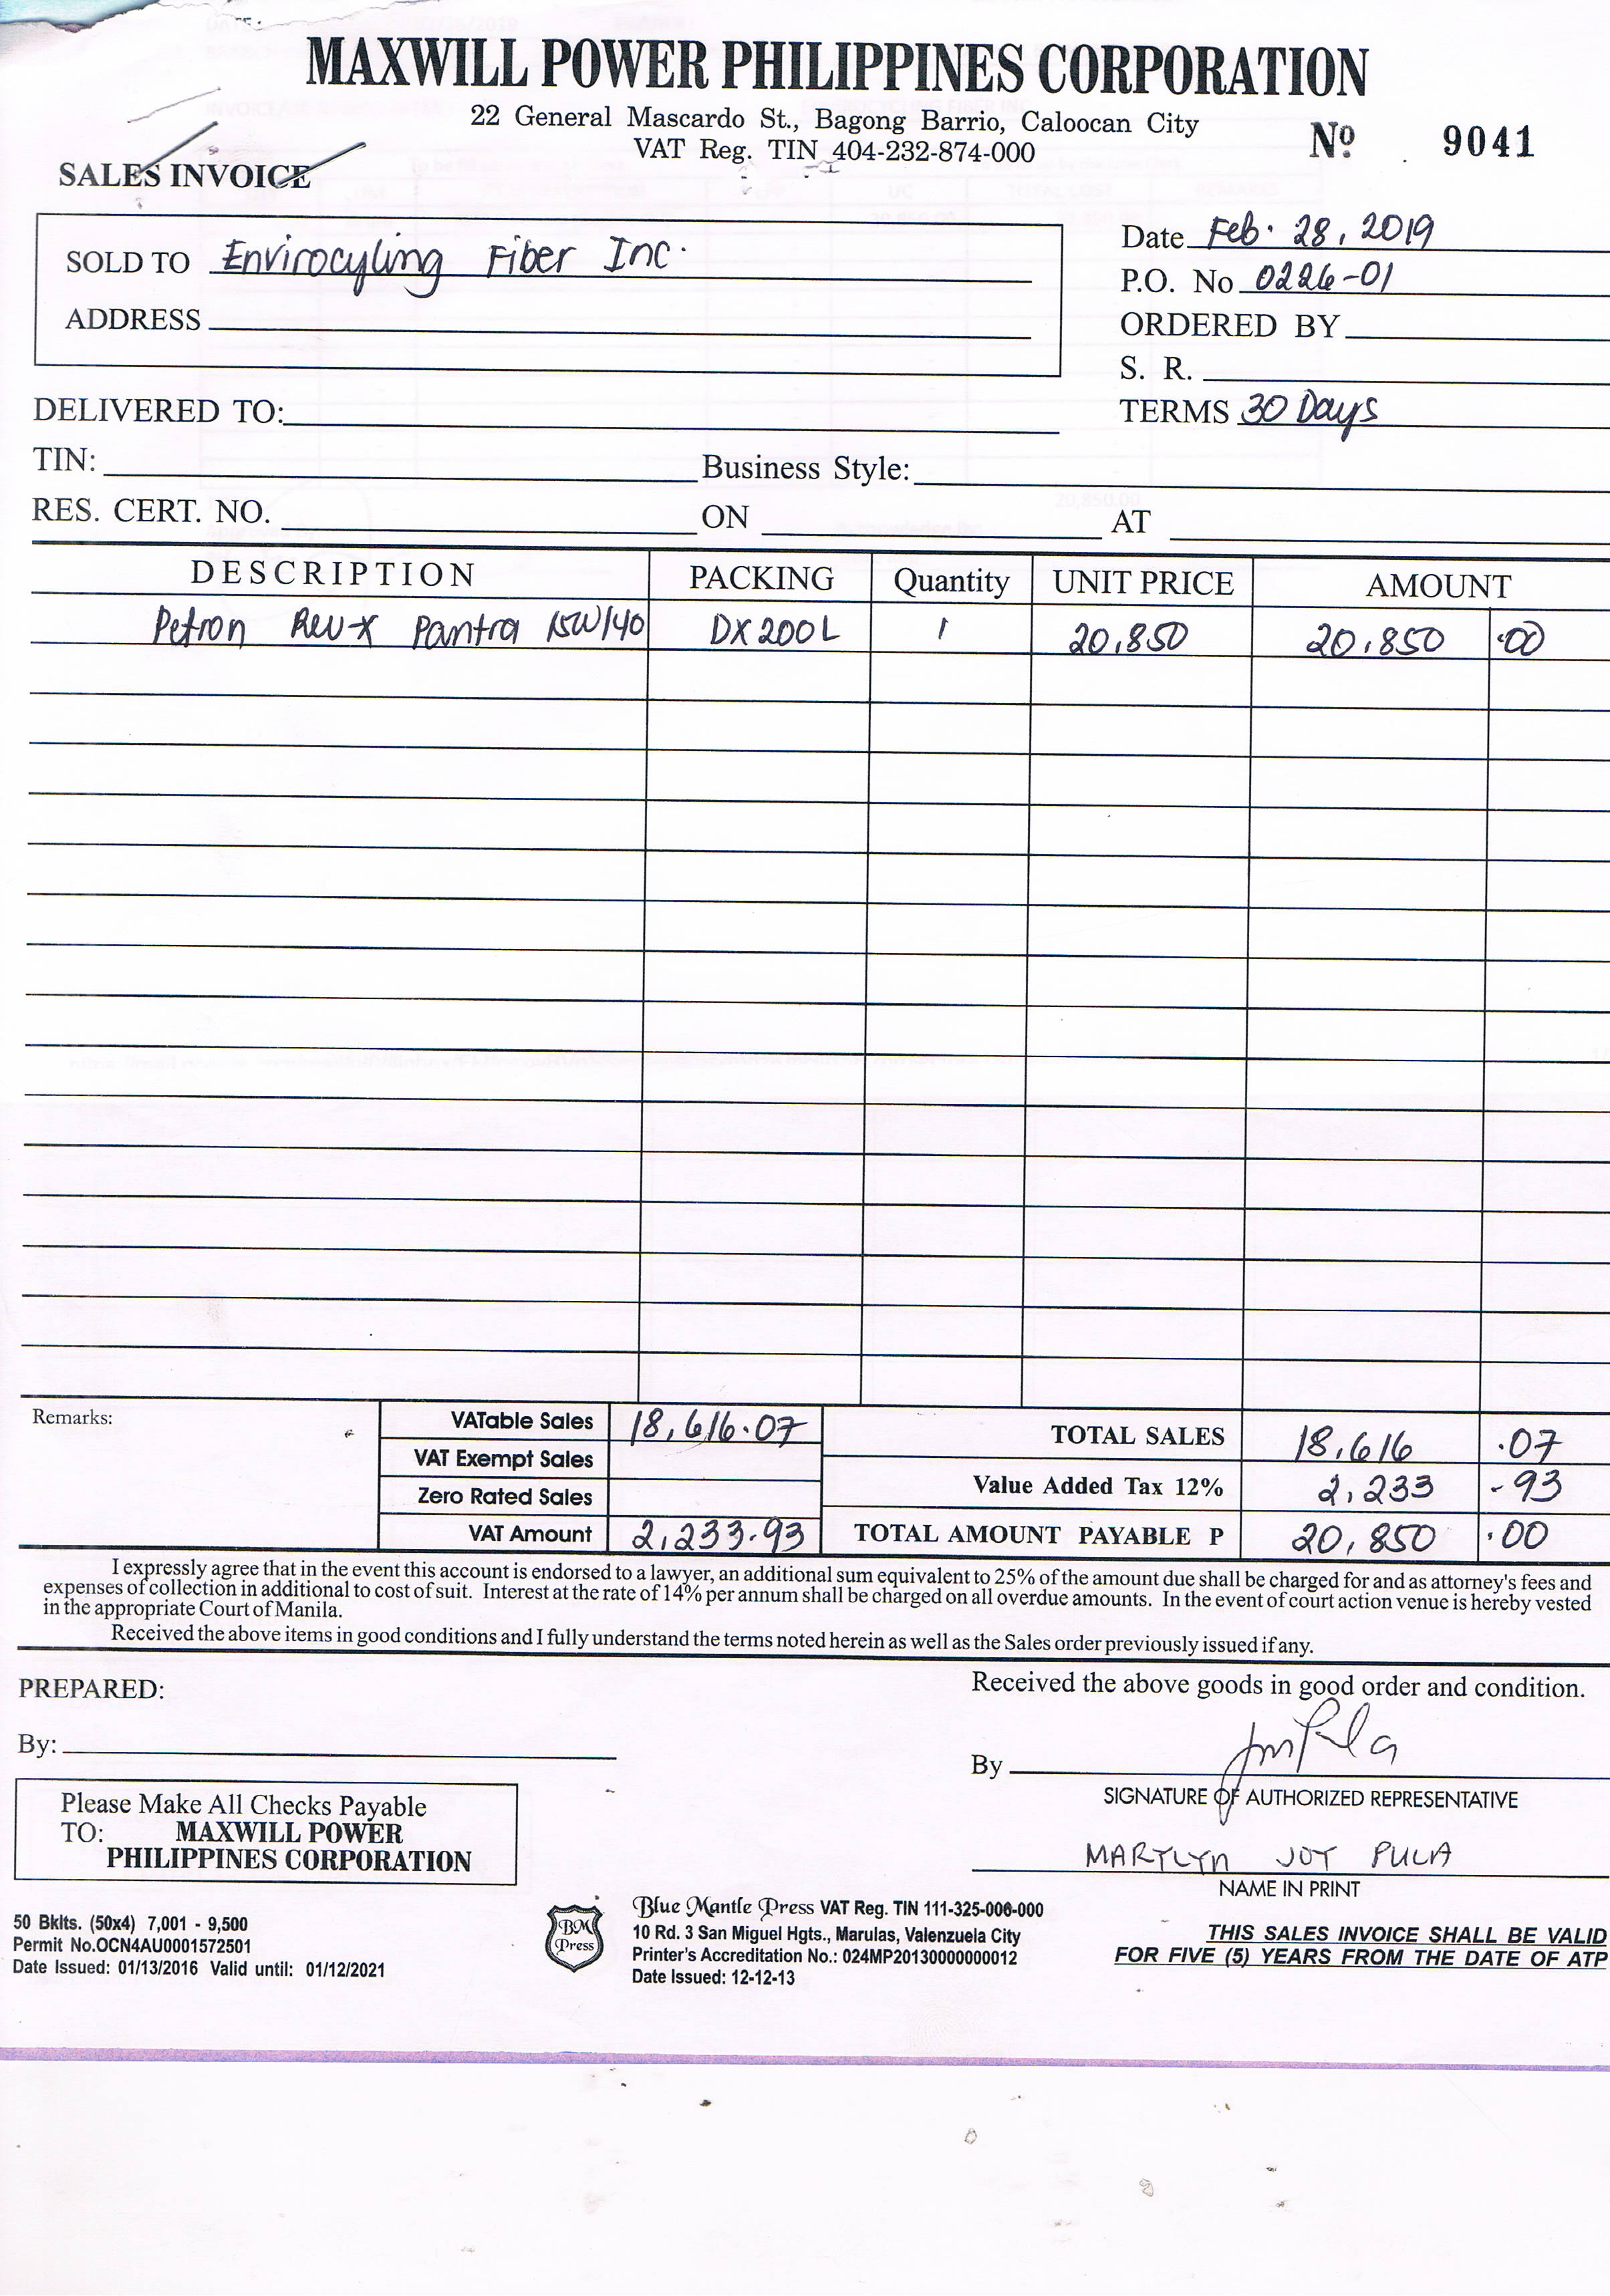 MAXWILL POWER PHILIPPINES CORPORATION
22 General Mascardo St., Bagong Barrio, Caloocan City
VAT Reg. TIN 404-232-874-000
Nº 9041
SALES INVOICE
SOLD TO Envirocyling Fiber Inc.
ADDRESS
Date Feb. 28, 2019
P.O. No 0226-01
ORDERED BY
S. R.
TERMS 30 Days
DELIVERED TO:
TIN: Business Style:
RES. CERT. NO. ON AT
DESCRIPTION PACKING Quantity UNIT PRICE AMOUNT
Petron Rev-x Pantra 15W/40 DX 200L 1 20,850 20,850 .00
Remarks:
VATable Sales 18,616.07
VAT Exempt Sales
Zero Rated Sales
VAT Amount 2,233.93
TOTAL SALES 18,616 .07
Value Added Tax 12% 2,233 -93
TOTAL AMOUNT PAYABLE P 20,850 .00
I expressly agree that in the event this account is endorsed to a lawyer, an additional sum equivalent to 25% of the amount due shall be charged for and as attorney's fees and
expenses of collection in additional to cost of suit. Interest at the rate of 14% per annum shall be charged on all overdue amounts. In the event of court action venue is hereby vested
in the appropriate Court of Manila.
Received the above items in good conditions and I fully understand the terms noted herein as well as the Sales order previously issued if any.
PREPARED:
By:
Received the above goods in good order and condition.
By
SIGNATURE OF AUTHORIZED REPRESENTATIVE
MARYLYN JOY PULA
NAME IN PRINT
Please Make All Checks Payable
TO: MAXWILL POWER
PHILIPPINES CORPORATION
50 Bklts. (50x4) 7,001 - 9,500
Permit No.OCN4AU0001572501
Date Issued: 01/13/2016 Valid until: 01/12/2021
BM
Press
Blue Mantle Press VAT Reg. TIN 111-325-006-000
10 Rd. 3 San Miguel Hgts., Marulas, Valenzuela City
Printer's Accreditation No.: 024MP20130000000012
Date Issued: 12-12-13
THIS SALES INVOICE SHALL BE VALID
FOR FIVE (5) YEARS FROM THE DATE OF ATP